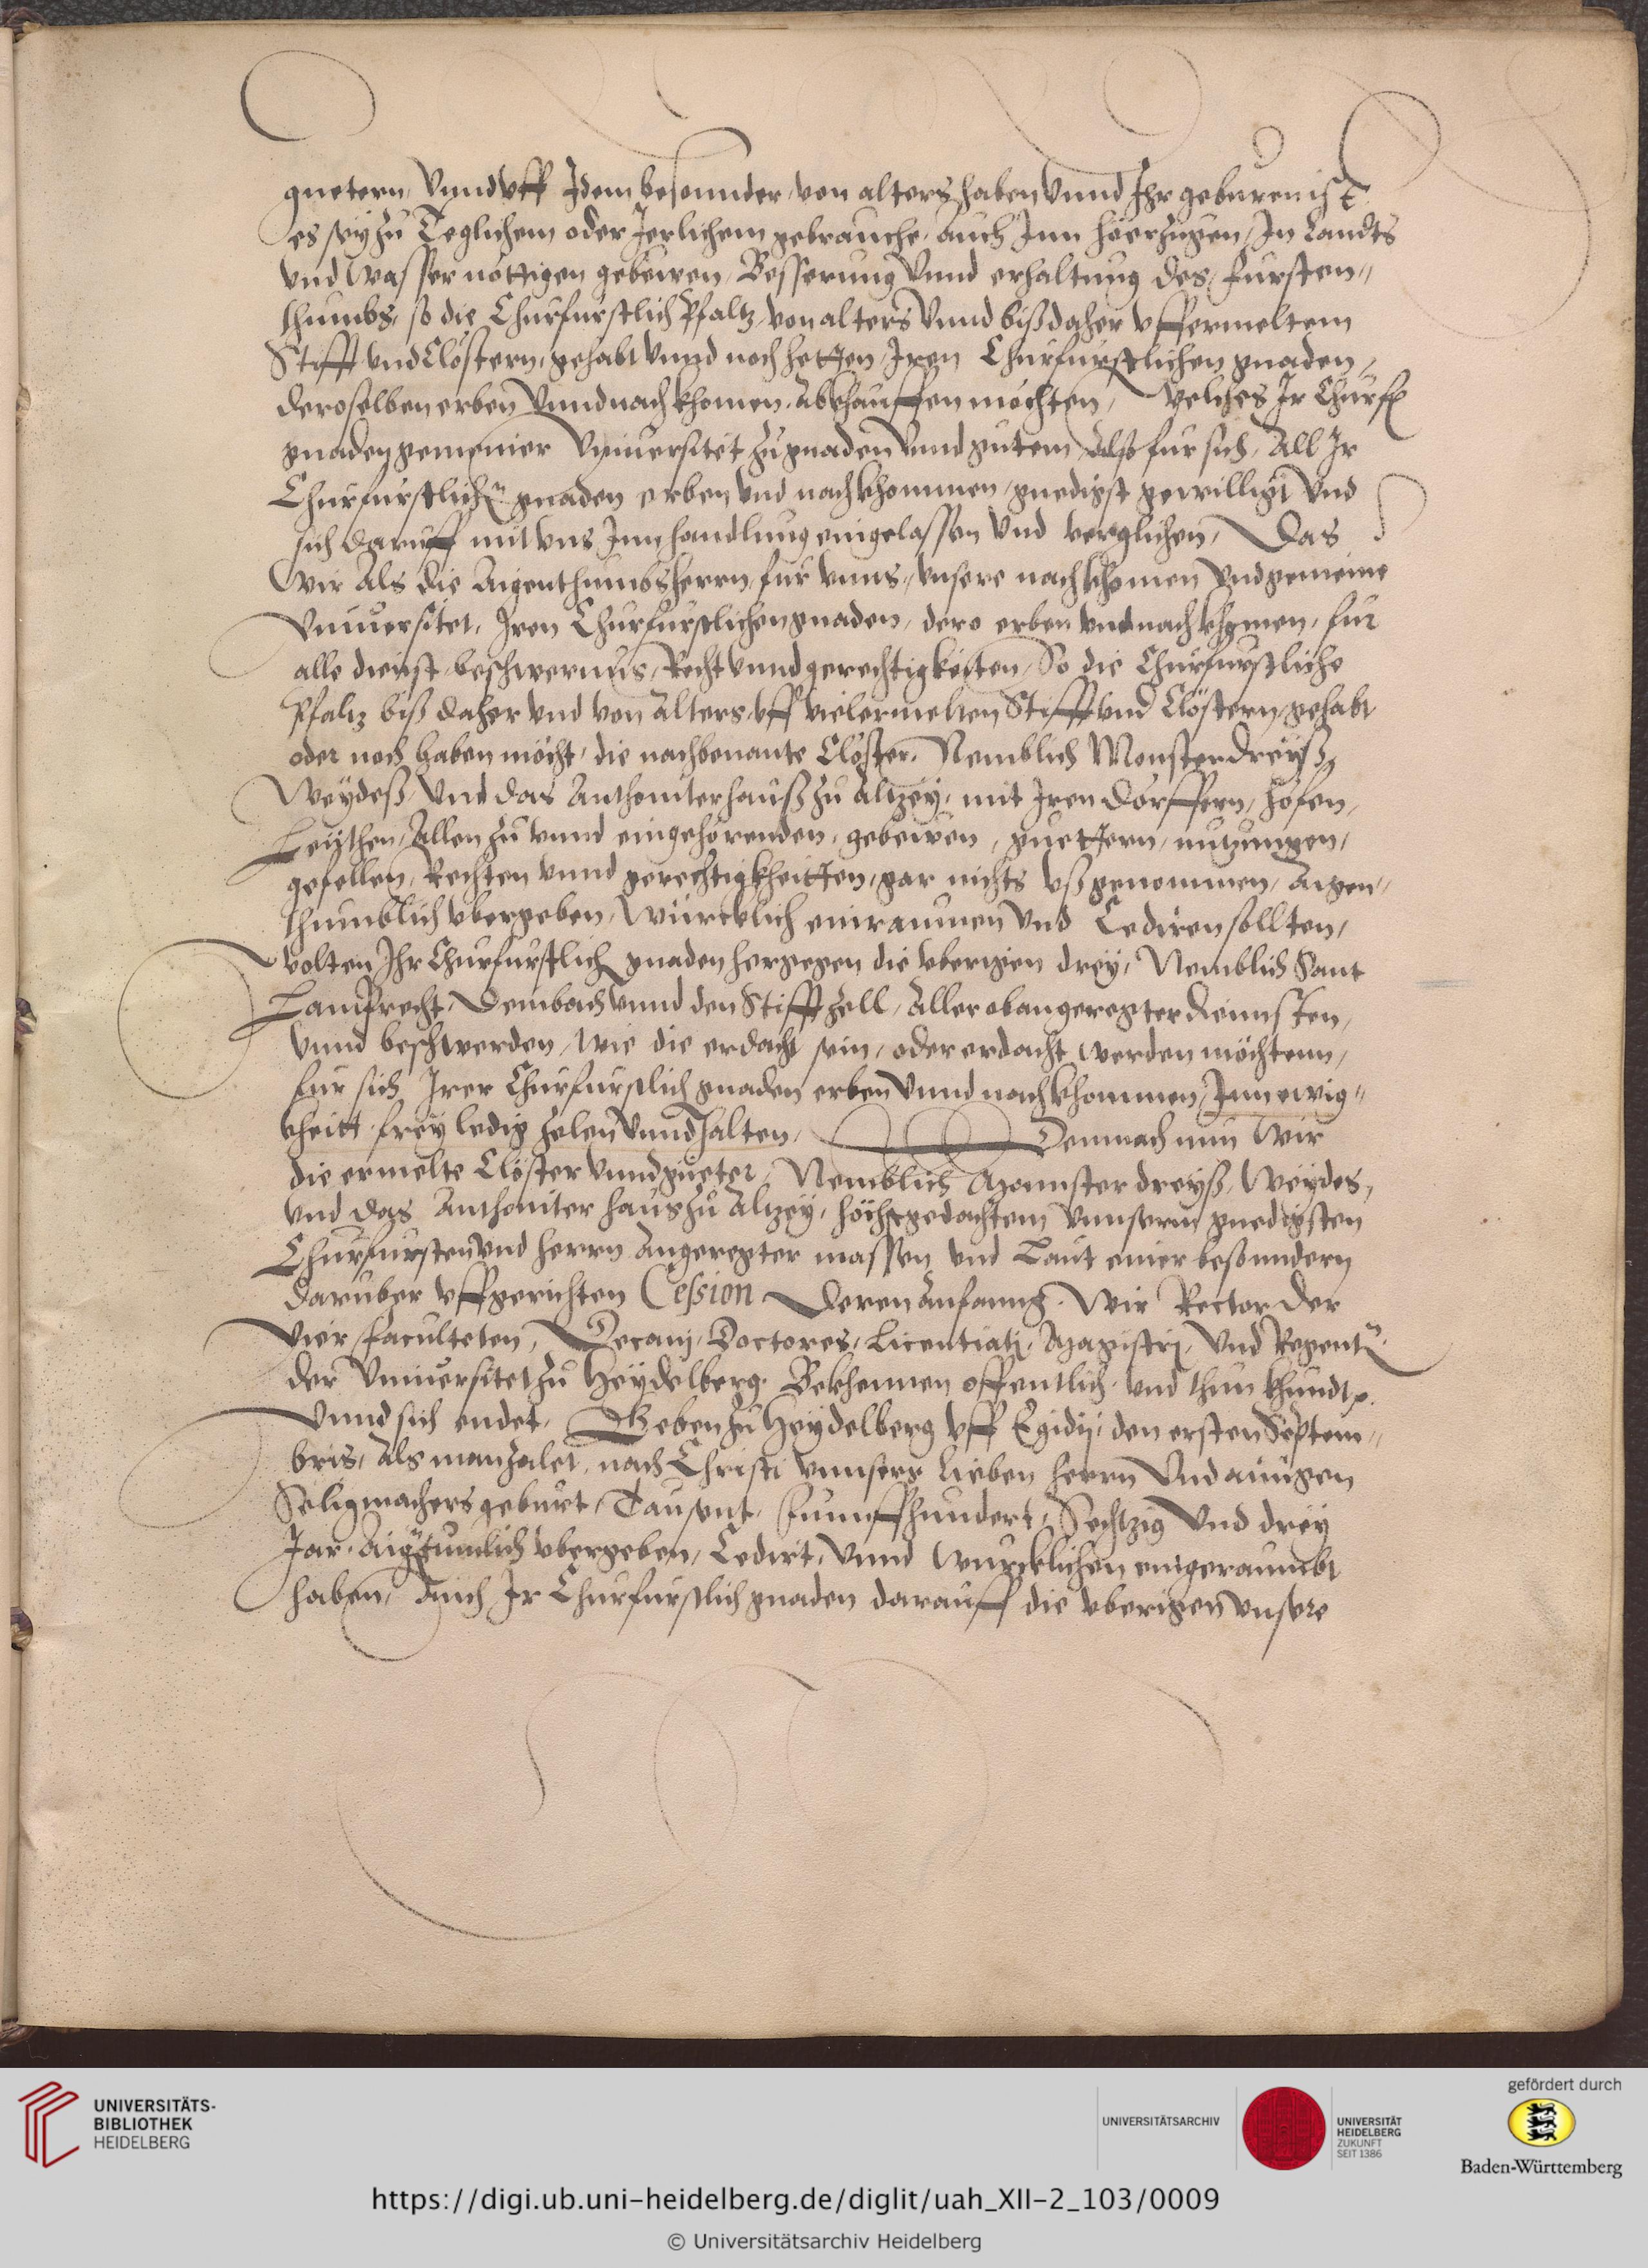 guetern, Vnnd vff Idem besonnder, von alters haben Vnnd Ihr geburen ist
es sey zu Teglichem oder Jerlichem gebrauche, Auch Inn heerzugen, In Landts
vnd Wasser nöttigen gebewen, Besserung Vnnd erhaltung des, fursten"
thumbs, so die Churfurstlich Pfaltz, von alters Vnnd biß daher vffermeltem
Stifft vnd Clöstern, gehabt Vnnd noch hetten, Iren Churfurstlichen gnaden,
deroselben erben Vnnd nachkhomen, Abkhauffen möchten, Welches Ir Churf
gnaden gemeiner Vniuersitet zu gnaden Vnnd gutem, Alß fur sich, All Ir
Churfurstlichn gnaden erben vnd nachkhommen, gnedigst gewilligt Vnd
sich daruff mit vns Inn handlung eingelassen Vnd verglichen, Das
Wir Als die Aigenthumbsherrn, fur vnns, vnsere nachkhomen Vnd gemeine
Vniuersitet, Iren Churfurstlichen gnaden, dero erben vnd nachkhomen, fur
alle dienst, beschwernus, Recht Vnnd gerechtigkeiten, So die Churfurstliche
Pfaltz biß daher vnd von Alters, vff vielermelten Stifft vnd Clöstern, gehabt
oder noch haben möcht, die nachbenante Clöster, Nemblich Monsterdreyß,
Weydeß, Vnd das Anthoniterhauß zu Altzey, mit Iren dörffern, höfen,
Leythen, Allen zu vnnd eingehörenden, gebewen, guettern, nutzungen,
gefellen, Rechten vnnd gerechtigkheitten, gar nichts vßgenommen, Aigen"
thumblich vbergeben, Würcklich einraumen Vnd Cediren sollten,
wolten Ihr Churfurstlich gnaden hergegen die vberigen drey, Nemblich Sant
Lamprecht, Deimbach Vnnd den Stifft Zell, Aller obangeregter diennsten,
Vnnd beschwerden, Wie die erdacht sein, oder erdacht werden möchtenn,
fur sich Irer Churfurstlich gnaden erben Vnnd nachkhommen, Inn ewig"
kheitt, frey ledig zelen Vnnd halten, Demnach nun Wir
die ermelte Clöster Vnnd güeter, Nemblich Monnsterdreyß, Weydes,
vnd das Anthoniter haus zu Altzey, höchstgedachtem Vnnserm gnedigsten
Churfursten Vnd herrn Angeregter massen vnd Laut einer besonndern
daruber vffgerichten Cession Deren Anfanng, Wir Rector Der
Vier faculteten, Decani, Doctores, Licentiati, Magistri, Vnd Regentn
der Vniuersitet zu Heydelberg, Bekhennen offentlich, vnd thun khundt
Vnnd sich endet, Geben zu Heydelberg vff Egidij, den ersten Septem"
bris, Als man zalet, nach Christi vnnsers lieben herrn Vnd ainigen
Seligmachers geburt, Tausent, funnffhundert, Sechtzig Vnd drey
Jar, Aigthumlich vbergeben, Cedirt, Vnnd Wurcklichen eingeraumbt
haben, Auch Ir Churfurstlich gnaden darauff die vberigen vnsere
UNIVERSITÄTS-
BIBLIOTHEK
HEIDELBERG
UNIVERSITÄTSARCHIV
UNIVERSITÄT
HEIDELBERG
ZUKUNFT
SEIT 1386
gefördert durch
Baden-Württemberg
https://digi.ub.uni-heidelberg.de/diglit/uah_XII-2_103/0009
© Universitätsarchiv Heidelberg